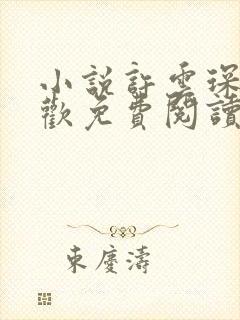 小說許雲琛
歡免費閱讀
東慶濤